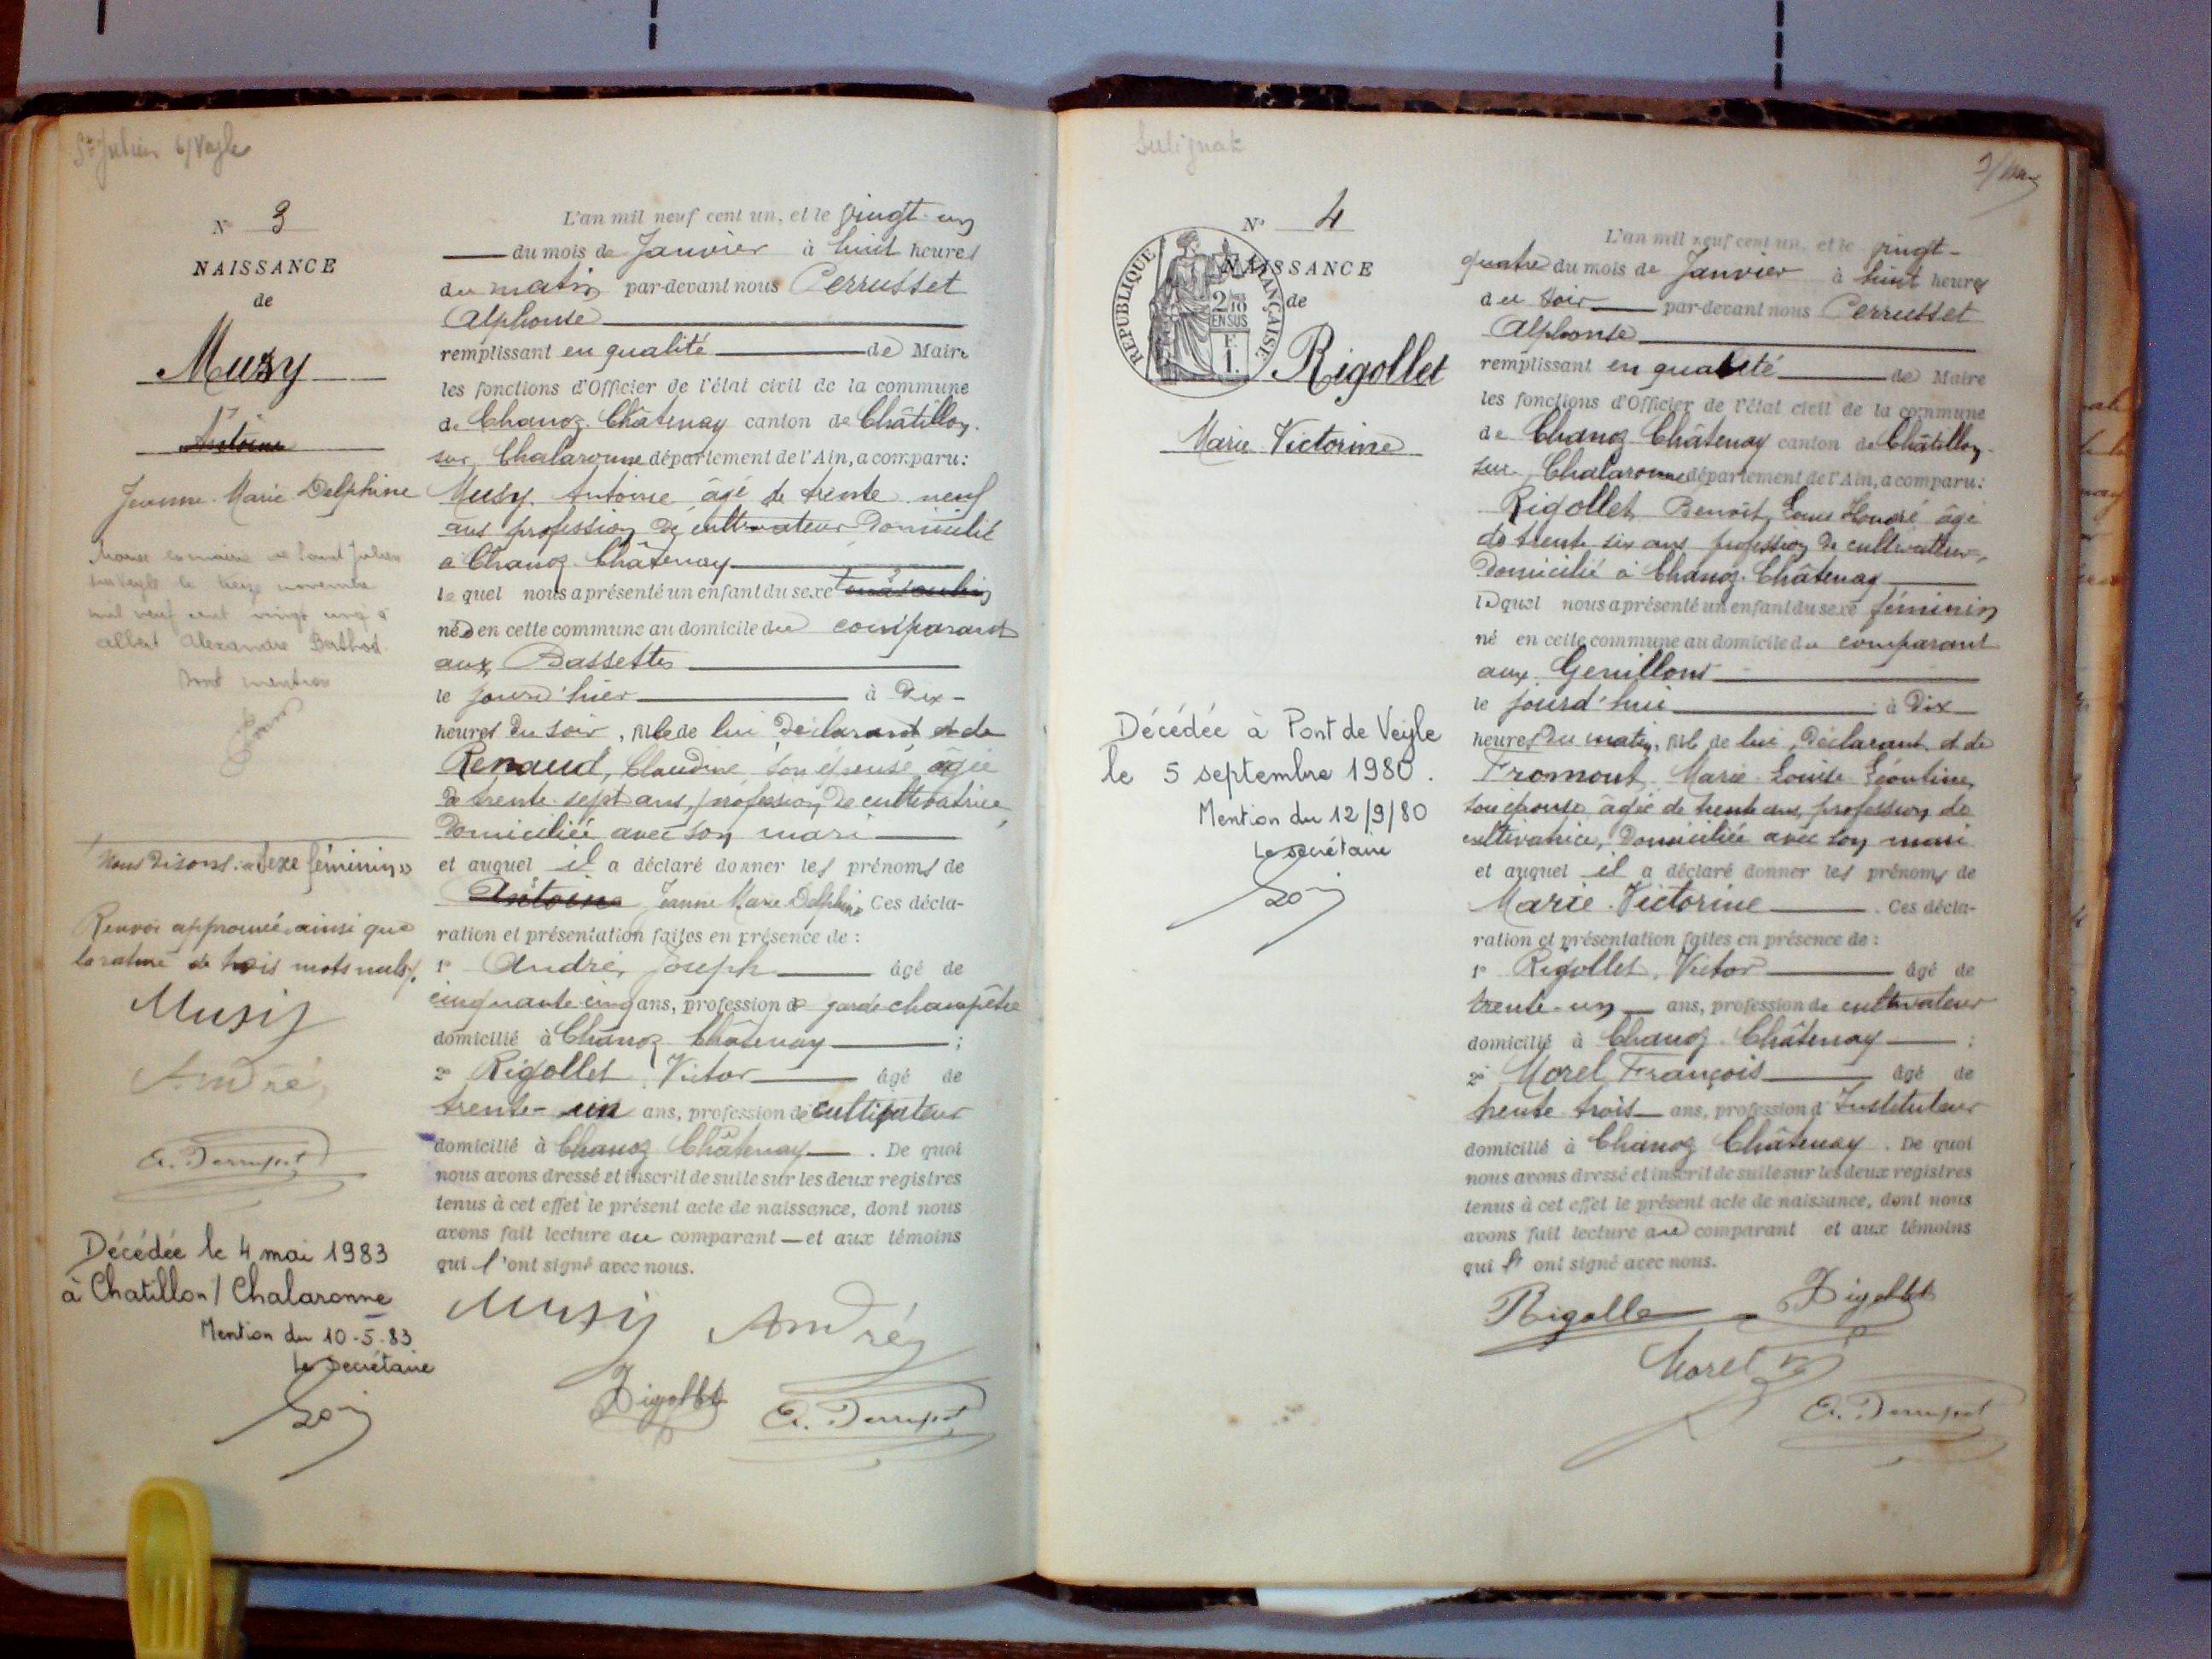 St Julien s/Veyle
N° 3
NAISSANCE
de
Musy
Antoine
Jeanne Marie Delphine
Mariée en mairie de Saint Julien
sur Veyle le treize novembre
mil neuf cent vingt cinq à
Albert Alexandre Berthod
Dont mention
Nous disons: "sexe féminin"
Renvoi approuvé ainsi que
la rature de trois mots nuls.
Musy
André
A. Perrusset
Décédée le 4 mai 1983
à Chatillon / Chalaronne
Mention du 10-5-83
Le Secrétaire
L'an mil neuf cent un, et le vingt-un
du mois de Janvier à huit heures
du matin par-devant nous Perrusset
Alphonse
remplissant en qualité de Maire
les fonctions d'Officier de l'état civil de la commune
de Chanoz-Châtenay canton de Châtillon-
sur-Chalaronne département de l'Ain, a comparu:
Musy Antoine âgé de trente-neuf
ans profession de cultivateur domicilié
à Chanoz-Châtenay
lequel nous a présenté un enfant du sexe masculin
née en cette commune au domicile du comparant
aux Bassettes
le jourd'hier à dix
heures du soir, fille de lui déclarant et de
Renaud, Claudine son épouse âgée
de trente-sept ans, profession de cultivatrice,
domiciliée avec son mari
et auquel il a déclaré donner les prénoms de
Antoine Jeanne Marie Delphine Ces décla-
ration et présentation faites en présence de :
1° André, Joseph âgé de
cinquante-cinq ans, profession de garde champêtre
domicilié à Chanoz Châtenay ;
2° Rigollet, Victor âgé de
trente-un ans, profession de cultivateur
domicilié à Chanoz Châtenay. De quoi
nous avons dressé et inscrit de suite sur les deux registres
tenus à cet effet le présent acte de naissance, dont nous
avons fait lecture au comparant et aux témoins
qui l'ont signé avec nous.
Musy André
Rigollet A. Perrusset
Sulignat
N° 4
RÉPUBLIQUE FRANÇAISE
2/10
EN SUS
F.
1.
NAISSANCE
de
Rigollet
Marie Victorine
Décédée à Pont de Veyle
le 5 septembre 1980.
Mention du 12/9/80
Le secrétaire
L'an mil neuf cent un, et le vingt-
quatre du mois de Janvier à huit heures
du soir par-devant nous Perrusset
Alphonse
remplissant en qualité de Maire
les fonctions d'Officier de l'état civil de la commune
de Chanoz-Châtenay canton de Châtillon-
sur-Chalaronne département de l'Ain, a comparu:
Rigollet Benoît, Louis Honoré âgé
de trente-six ans profession de cultivateur,
domicilié à Chanoz-Châtenay
lequel nous a présenté un enfant du sexe féminin
né en cette commune au domicile du comparant
aux Genillons
le jourd'hui à dix
heures du matin, fille de lui, déclarant et de
Fromont Marie Louise Léontine
son épouse âgée de trente ans, profession de
cultivatrice, domiciliée avec son mari
et auquel il a déclaré donner les prénoms de
Marie-Victorine. Ces décla-
ration et présentation faites en présence de :
1° Rigollet, Victor âgé de
trente-un ans, profession de cultivateur
domicilié à Chanoz-Châtenay ;
2° Morel, François âgé de
trente-trois ans, profession d'Instituteur
domicilié à Chanoz Châtenay. De quoi
nous avons dressé et inscrit de suite sur les deux registres
tenus à cet effet le présent acte de naissance, dont nous
avons fait lecture au comparant et aux témoins
qui l'ont signé avec nous.
Rigollet Rigollet
Morel
A. Perrusset